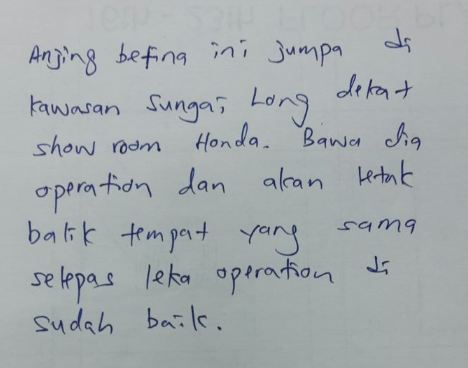 Anjing betina ini jumpa di
kawasan Sungai Long dekat
show room Honda. Bawa dia
operation dan akan letak
balik tempat yang sama
selepas leka operation di
sudah baik.